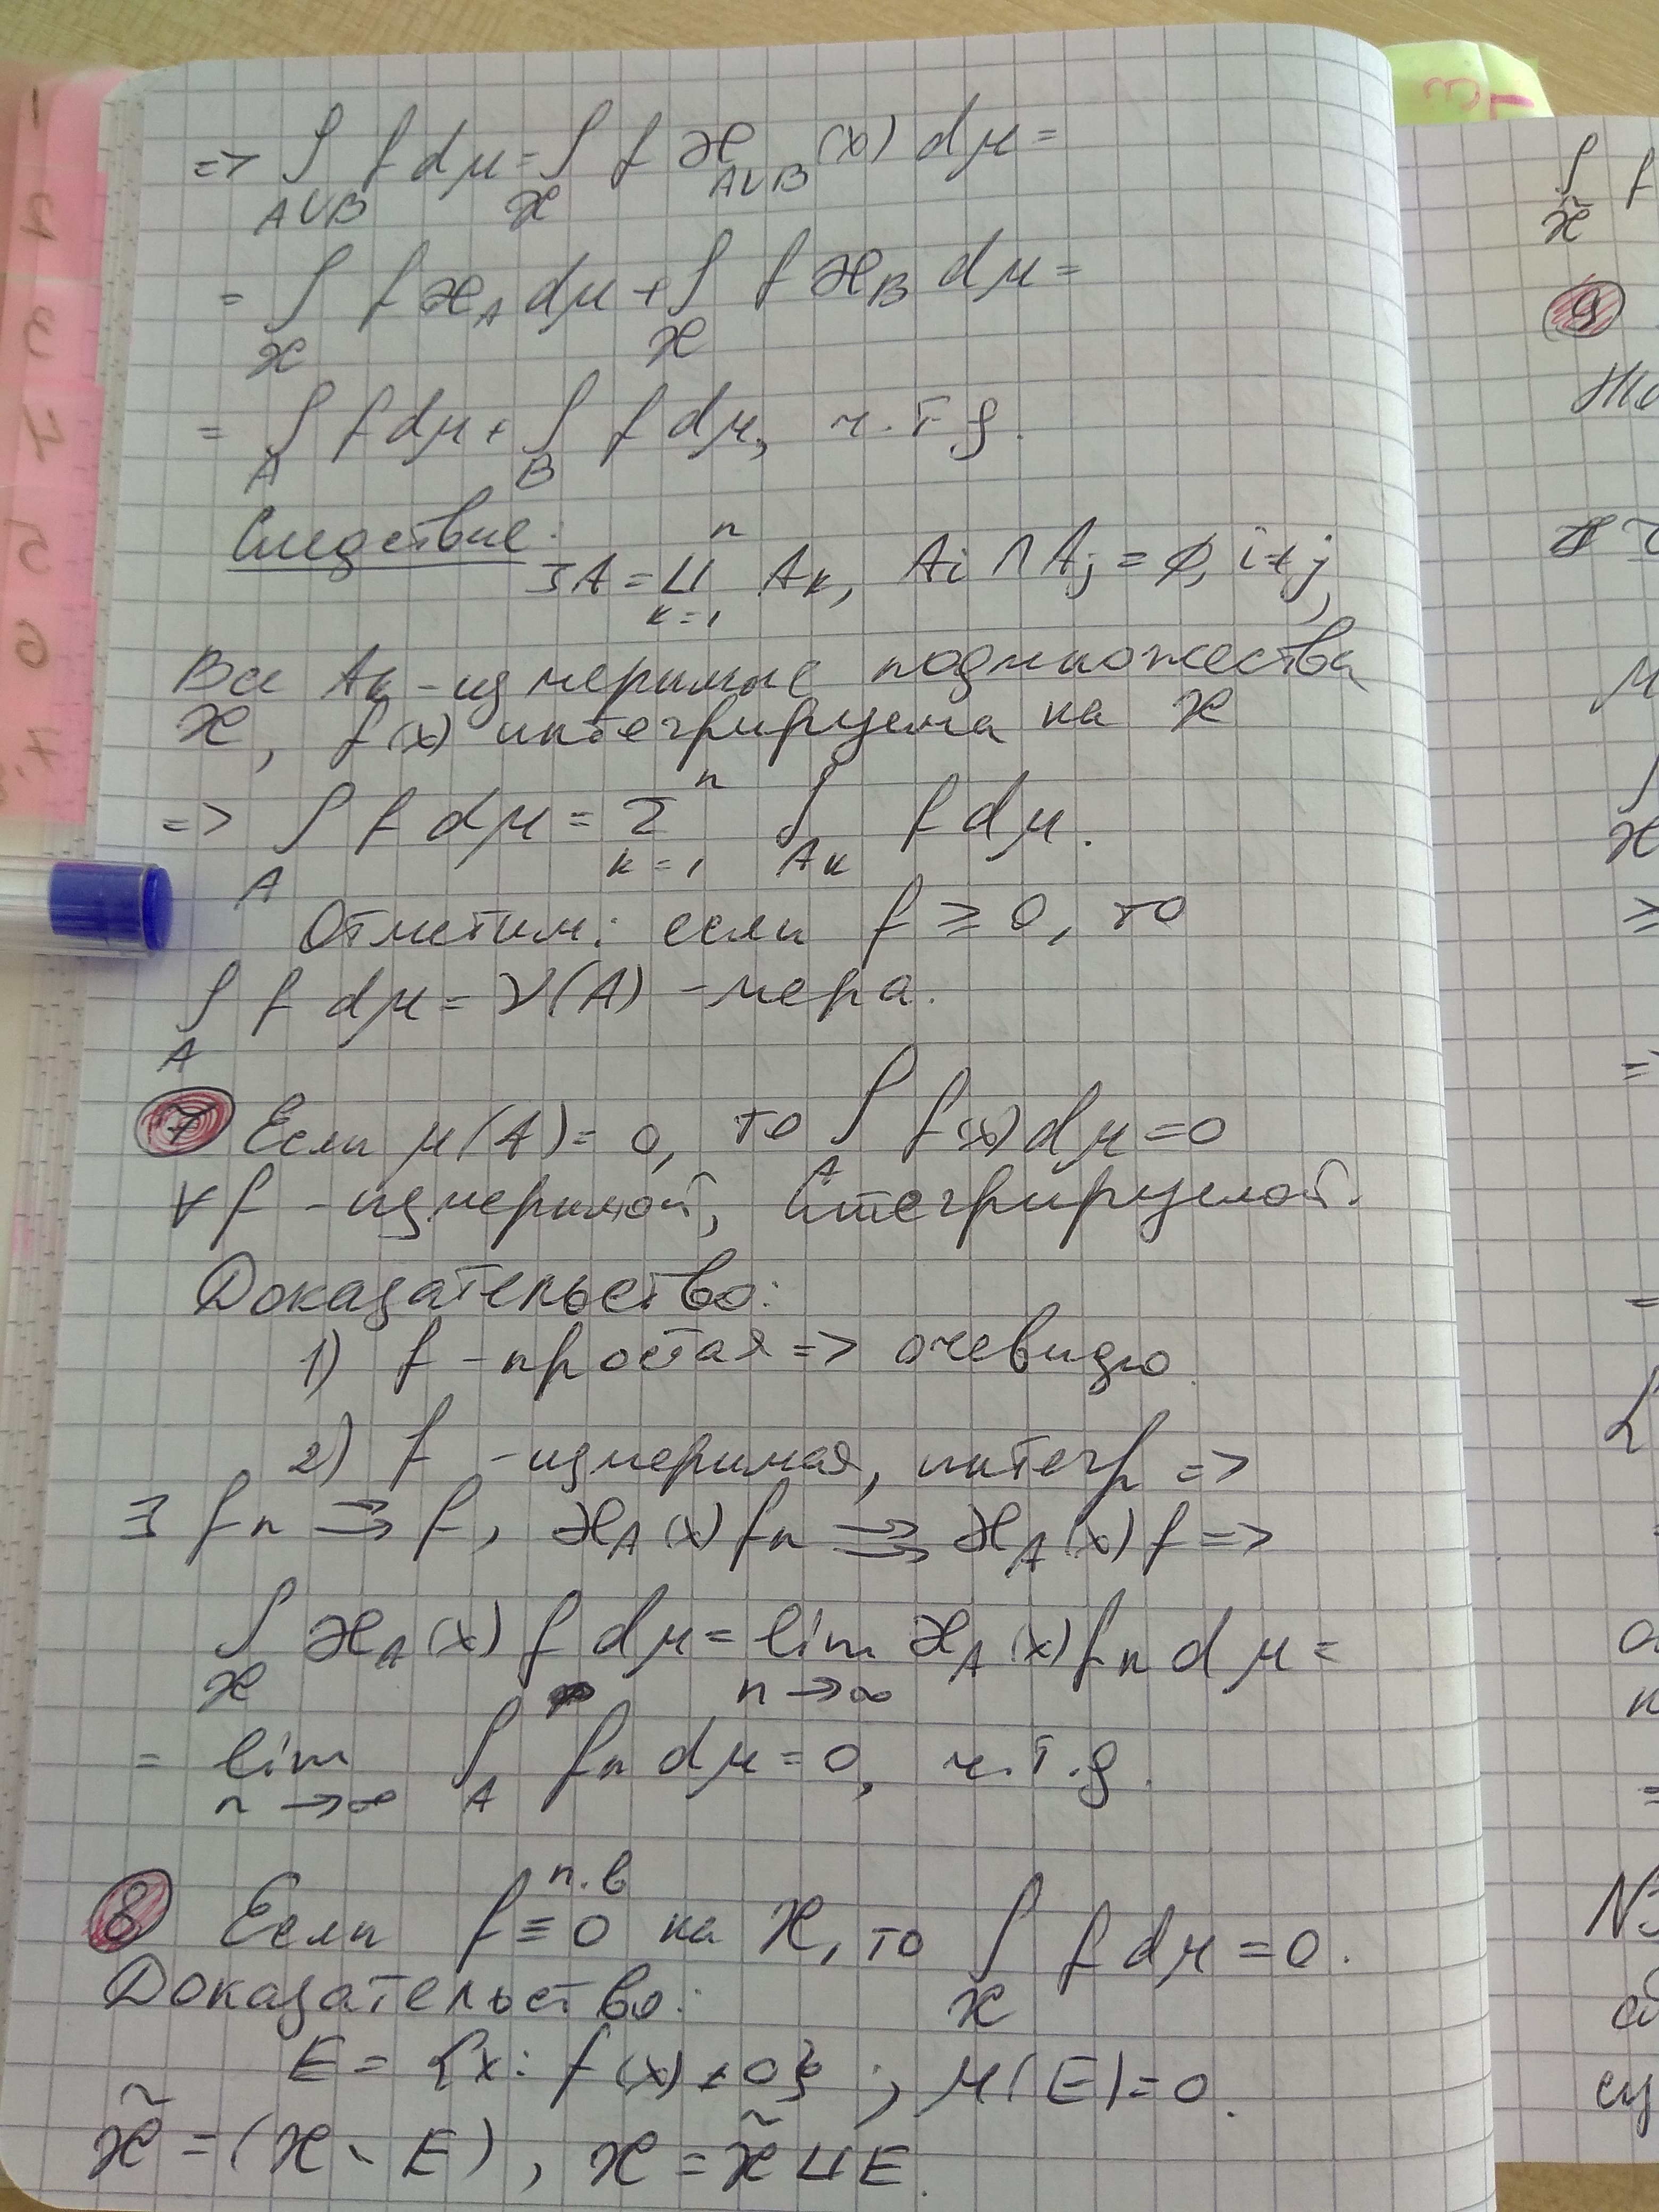 => ∫ f dμ = ∫ f æ (x) dμ =
A∪B X A∪B
= ∫ f æ_A dμ + ∫ f æ_B dμ =
X X
= ∫ f dμ + ∫ f dμ, ч.т.д.
A B
Следствие:
∃ A = ⊔ A_k, A_i ∩ A_j = ∅, i ≠ j,
n k=1
Все A_k - измеримые подмножества
X, f(x) интегрируема на X
=> ∫ f dμ = Σ ∫ f dμ.
A n k=1 A_k
Отметим: если f ≥ 0, то
∫ f dμ = ν(A) - мера.
A
7 Если μ(A) = 0, то ∫ f(x) dμ = 0
A
∀ f - измеримой, интегрируемой.
Доказательство:
1) f - простая => очевидно.
2) f - измеримая, интегр =>
∃ f_n ⇉ f, æ_A(x) f_n ⇉ æ_A(x) f =>
∫ æ_A(x) f dμ = lim æ_A(x) f_n dμ =
X n→∞
= lim ∫ f_n dμ = 0, ч.т.д.
n→∞ A
п.в
8 Если f ≡ 0 на X, то ∫ f dμ = 0.
X
Доказательство:
E = {x: f(x) ≠ 0}; μ(E) = 0.
X̃ = (X \ E), X = X̃ ⊔ E.
∫ f
X̃
9